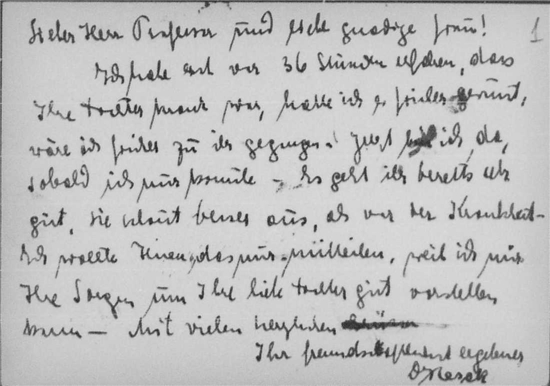 Lieber Herr Professor und sehr gnädige Frau! 1
Ich habe erst vor 36 Stunden erfahren, dass
Ihre Tochter krank war, hätte ich es früher gewusst,
wäre ich früher zu ihr gegangen. Jetzt bin ich da,
sobald ich nur konnte – Es geht ihr bereits sehr
gut, sie schaut besser aus, als vor der Krankheit –
Ich wollte Ihnen das nur mitteilen, weil ich mir
Ihre Sorgen um Ihre liebe Tochter gut vorstellen
kann – Mit vielen herzlichen
Ihr freundschaftlichst ergebener